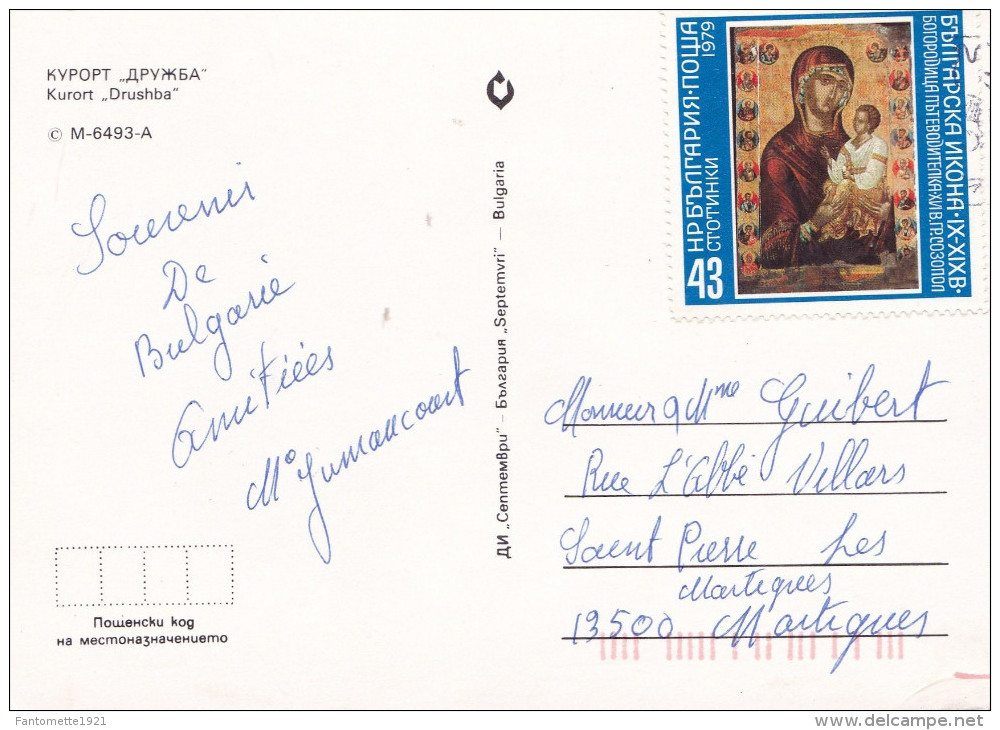 КУРОРТ „ДРУЖБА"
Kurort „Drushba"
© М-6493-А
Souvenir
De
Bulgarie
Amitiées
Пощенски код
на местоназначението
ДИ „Септември" – България „Septemvri" – Bulgaria
НР БЪЛГАРИЯ·ПОЩА
1979
43 СТОТИНКИ
БЪЛГАРСКА ИКОНА·IX-XIXВ·
БОГОРОДИЦА ПЪТЕВОДИТЕЛКА·XIIВ.ГР.СОЗОПОЛ
Monsieur Mme Guibert
Rue L'Abbé Villars
Saint Pierre Les
Martigues
13500 Martigues
Fantomette1921
delcampe.net